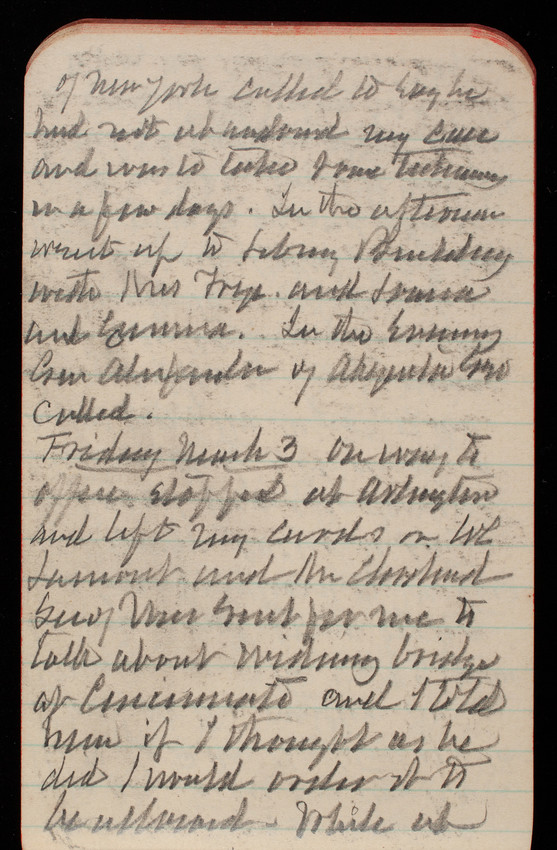 of New York called to say he
had not abandoned my case
and was to take some testimony
in a few days. In the afternoon
went up to Library Building
with Mrs and
and Emma. In the Evening
Gen Alexander of Augusta Geo
called.
Friday March 3 On way to
office stopped at Arlington
and left my cards on Col
Lamont and Mr Cleveland
Secy War sent for me to
talk about widening bridge
at Cincinnati and I told
him if I thought as he
did I would order it to
be allowed. While at